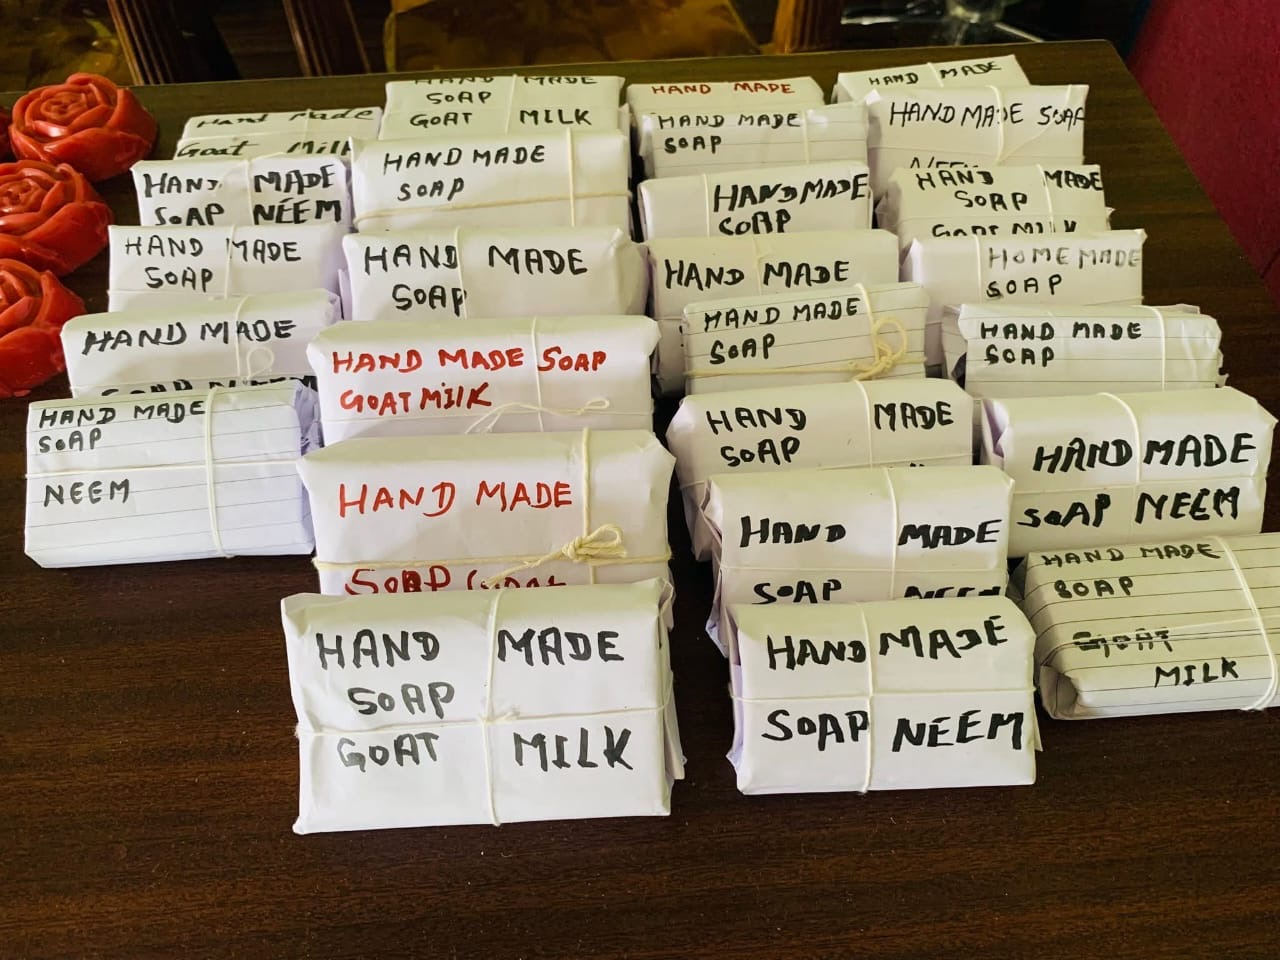 Hand Made
Goat Milk
HAND MADE
SOAP NEEM
HAND MADE
SOAP
HAND MADE
SOAP NEEM
HAND MADE
SOAP
NEEM
HAND MADE
SOAP
GOAT MILK
HAND MADE
SOAP
HAND MADE
SOAP
HAND MADE SOAP
GOAT MILK
HAND MADE
SOAP GOAT
HAND MADE
SOAP
GOAT MILK
HAND MADE
HAND MADE
SOAP
HAND MADE
SOAP
HAND MADE
HAND MADE
SOAP
HAND MADE
SOAP
HAND MADE
SOAP NEEM
HAND MADE
SOAP NEEM
HAND MADE
HAND MADE SOAP
NEEM
HAND MADE
SOAP
GOAT MILK
HOME MADE
SOAP
HAND MADE
SOAP
HAND MADE
SOAP NEEM
HAND MADE
SOAP
GOAT
MILK